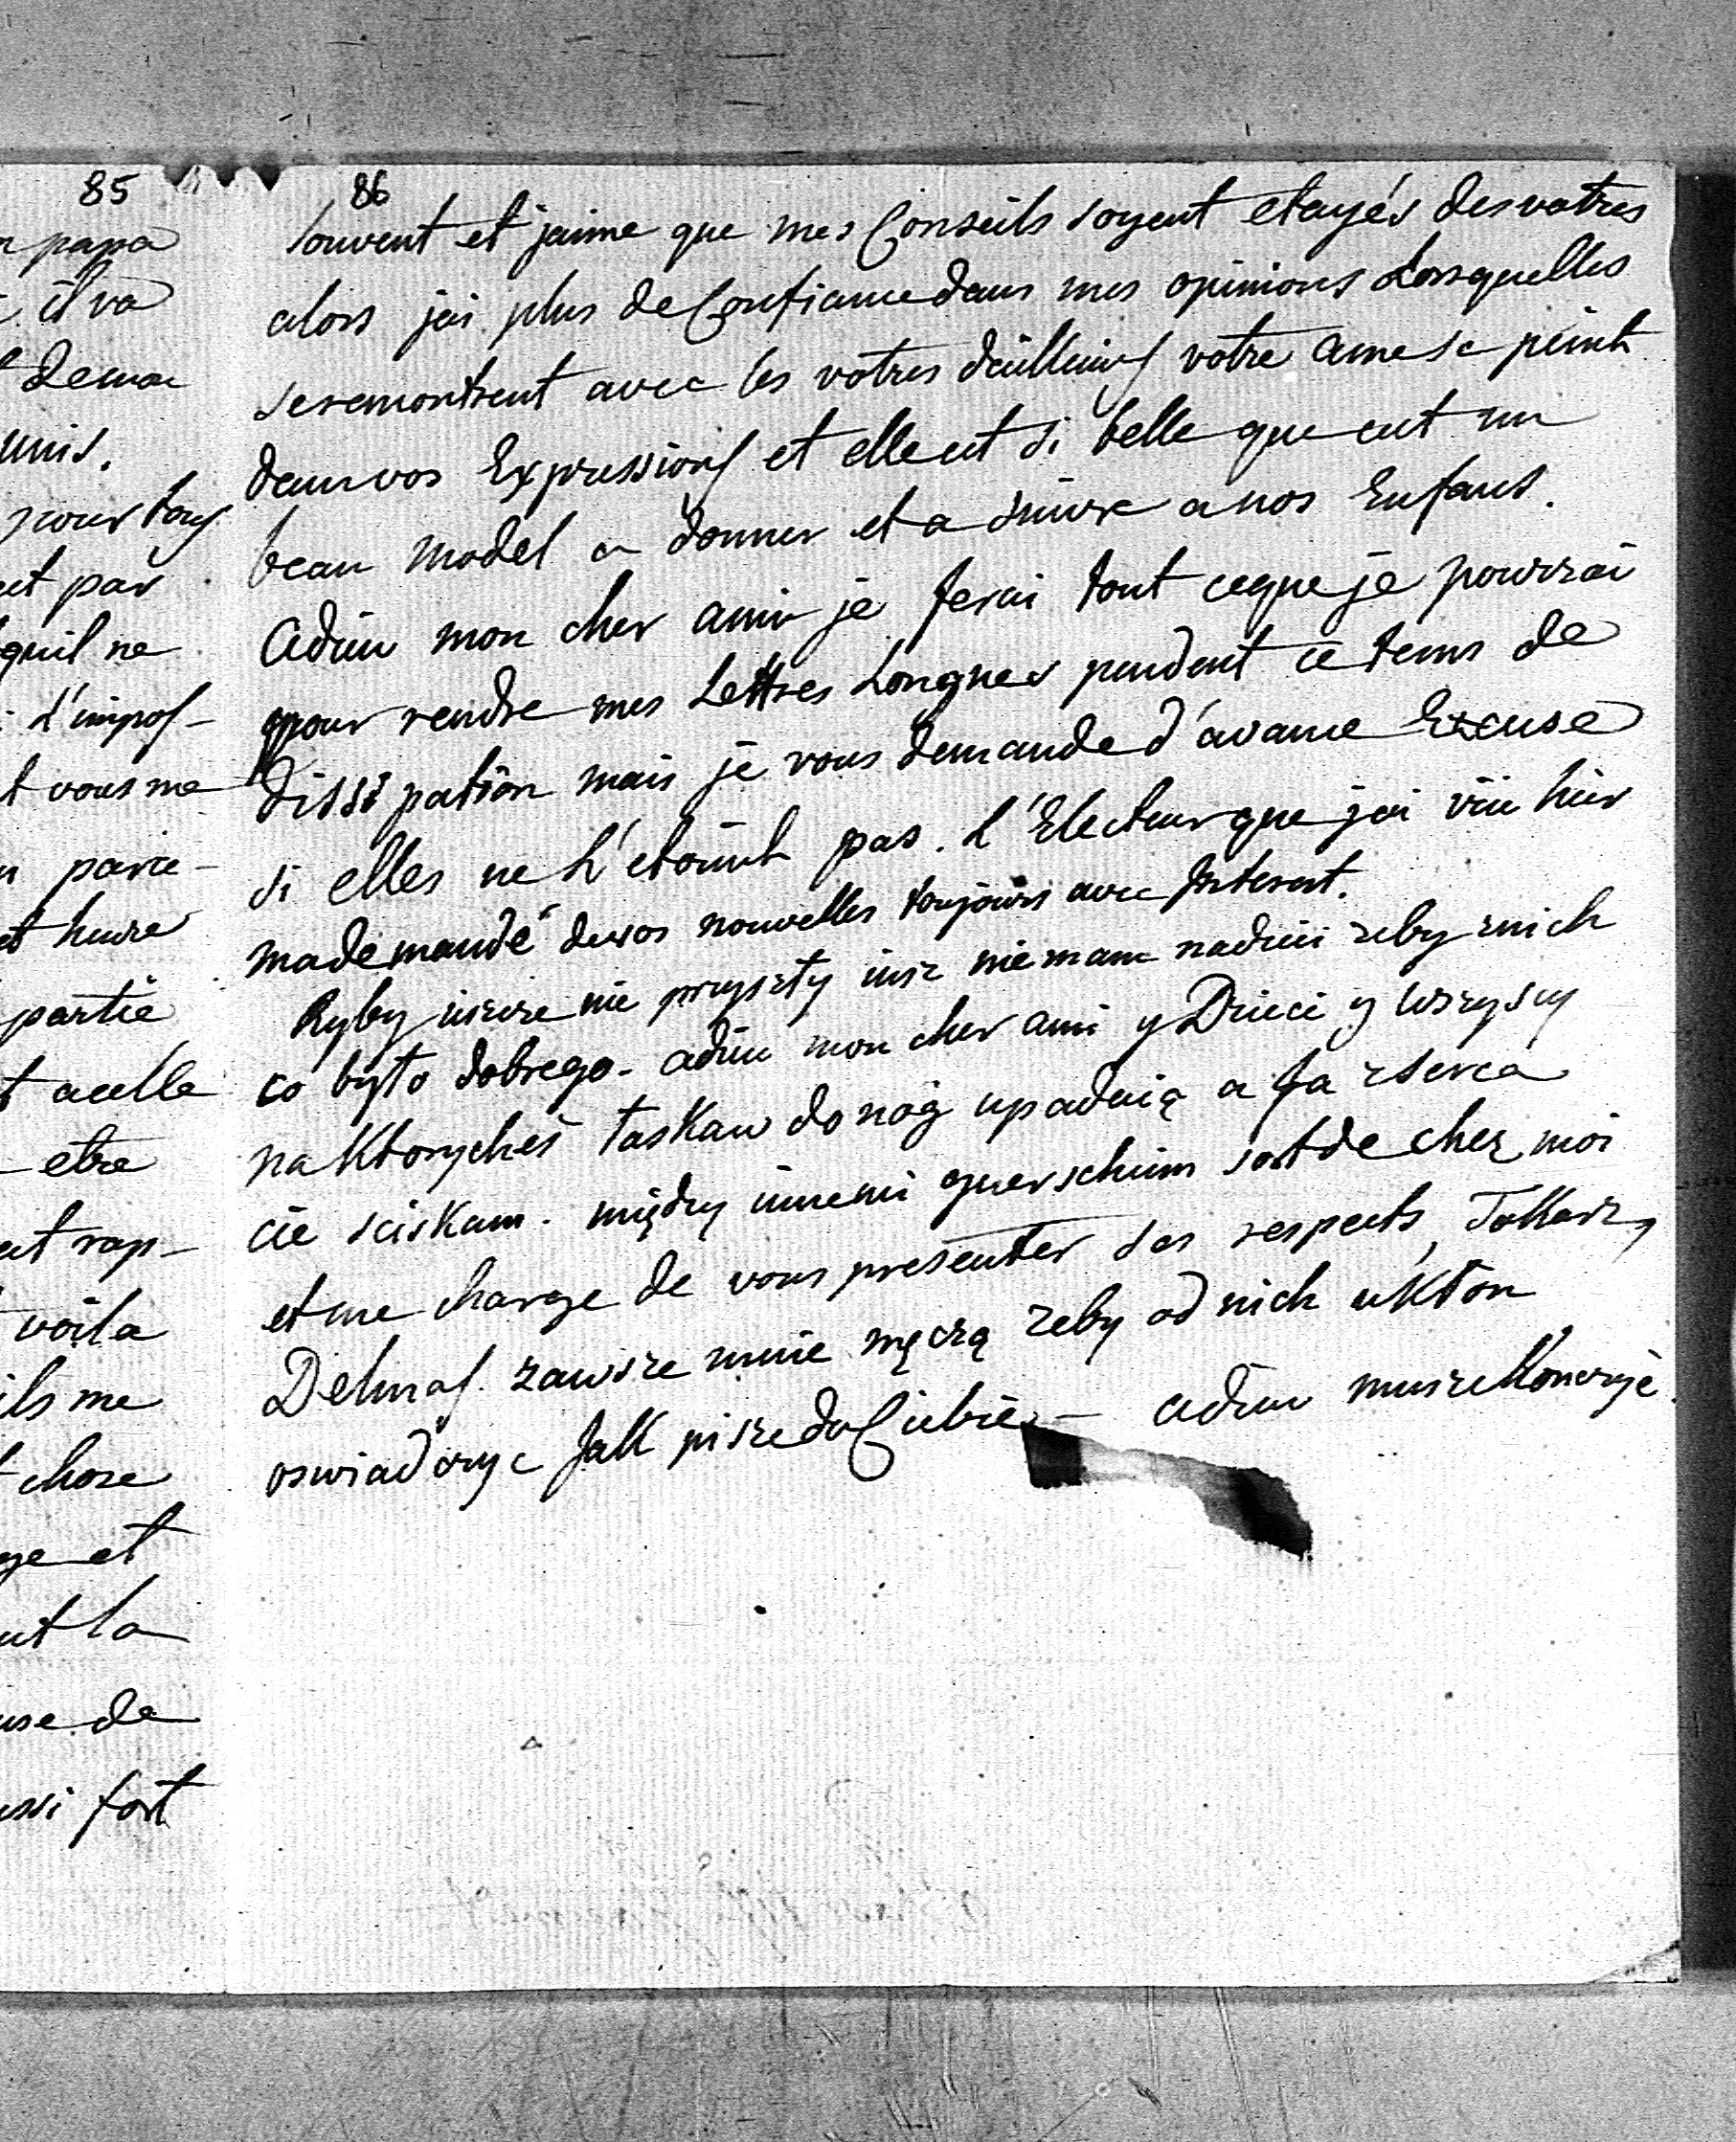 85
n papa
il va
t demon
unis.
pour tous
est par
quil ne
L'impos-
t vous me
n parce-
et heure
partie
t acelle
- etre
est rap-
voila
ils me
t chose
ge et
ut la
use de
ussi fort
86
souvent et jaime que mes Conseils soyent etayés des votres
alors jai plus de Confiance dans mes opinions Lorsquelles
se remontrent avec les votres dailleurs votre ame se peint
dans vos Expressions et elle est si belle que cest un
beau model a donner et a suivre a nos Enfans.
Adieu mon cher ami je ferai tout ceque je pourrai
pour rendre mes Lettres Longues pendent ce tems de
dissipation mais je vous demande d'avance Excuse
si elles ne L'etoint pas. L'Electeur que jai vüe hier
ma demandé de vos nouvelles toujours avec Interest.
Ryby ieszcze nie przyszły iusz nie mam nadziei zeby z nich
co było dobrego. adieu mon cher ami y Dzieci y wszyscy
na Ktorycheś łaskaw do nóg upadaią a Ja z serca
cie sciskam. między innemi guerschim sort de chez moi
et me charge de vous presenter ses respects, Tokarz,
Delmas. zawsze mnie męczą zeby od nich ukłon
oswiadczyc Jak pisze do Ciebie - adieu musze Konczyć.